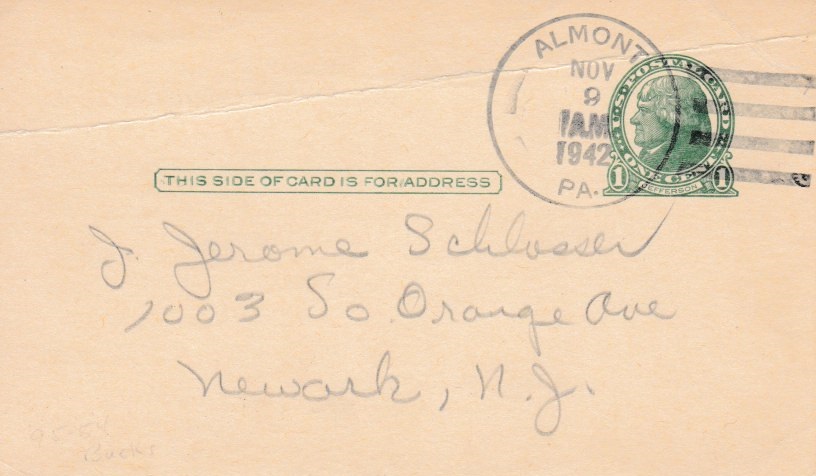 ALMONT
NOV
9
1AM
1942
PA.
U.S. POSTAL CARD
ONE CENT
1 JEFFERSON 1
THIS SIDE OF CARD IS FOR ADDRESS
J. Jerome Schlosser
1003 So Orange Ave
Newark, N.J.
Bucks